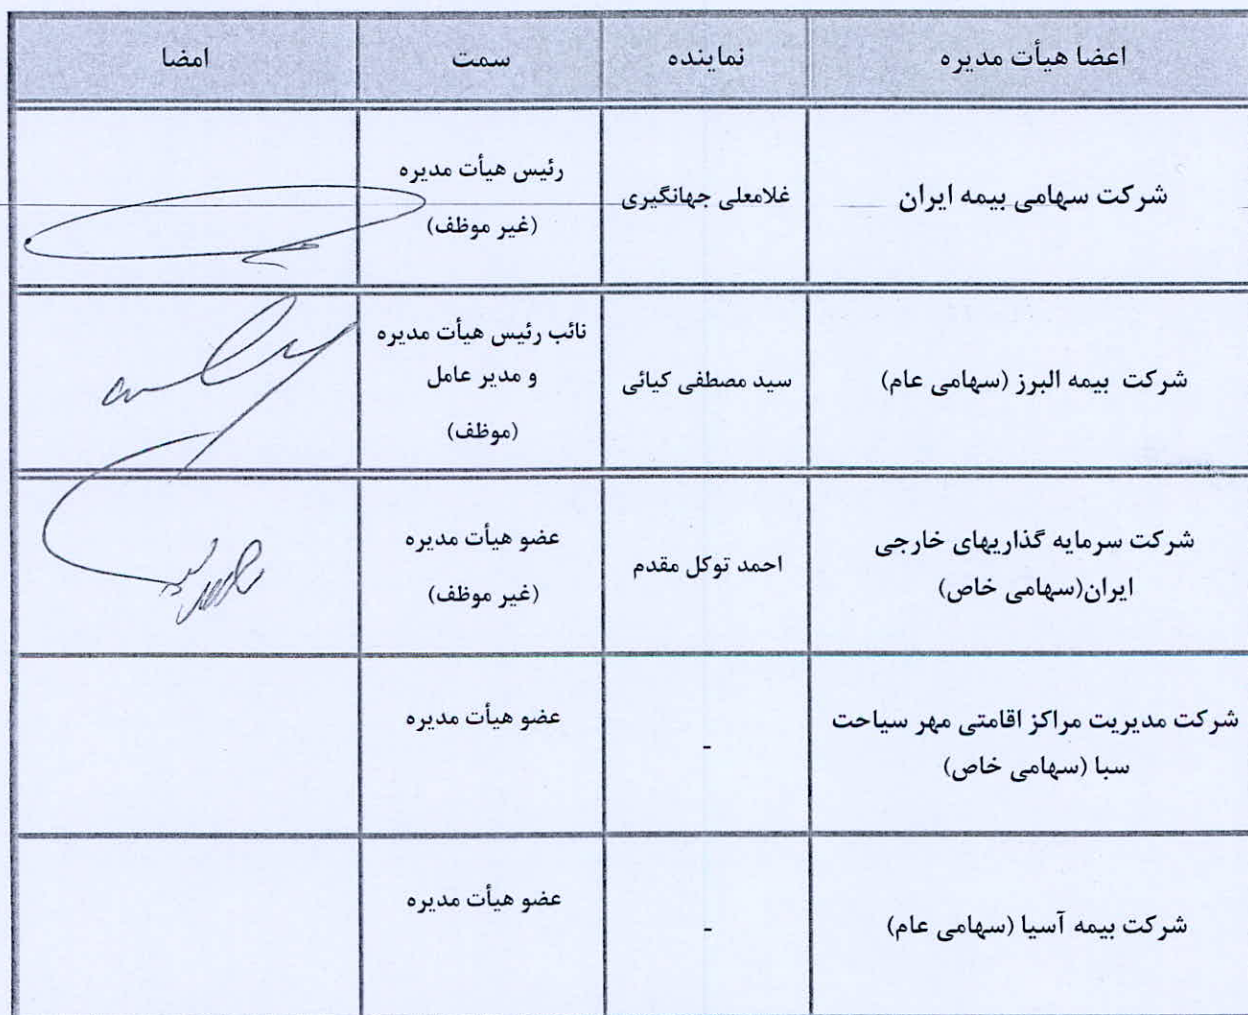 اعضا هیأت مدیره	نماینده	سمت	امضا
شرکت سهامی بیمه ایران	غلامعلی جهانگیری	رئیس هیأت مدیره
(غیر موظف)
شرکت بیمه البرز (سهامی عام)	سید مصطفی کیائی	نائب رئیس هیأت مدیره
و مدیر عامل
(موظف)
شرکت سرمایه گذاریهای خارجی
ایران(سهامی خاص)	احمد توکل مقدم	عضو هیأت مدیره
(غیر موظف)
شرکت مدیریت مراکز اقامتی مهر سیاحت
سبا (سهامی خاص)	-	عضو هیأت مدیره
شرکت بیمه آسیا (سهامی عام)	-	عضو هیأت مدیره